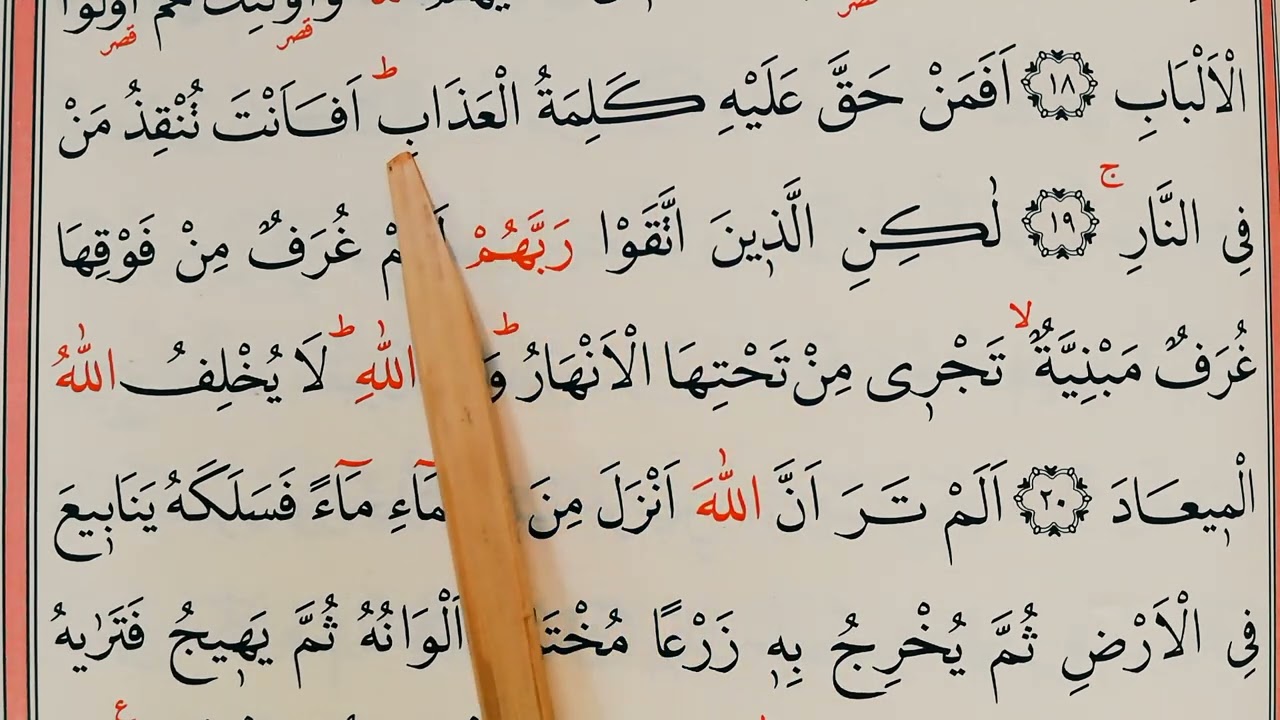 وَاُولٰٓئِكَ هُمْ اُو۬لُوا
قصر قصر
الْاَلْبَابِ ﴿١٨﴾ اَفَمَنْ حَقَّ عَلَيْهِ كَلِمَةُ الْعَذَابِ ۜط اَفَاَنْتَ تُنْقِذُ مَنْ
فِى النَّارِ ج ﴿١٩﴾ لٰكِنِ الَّذ۪ينَ اتَّقَوْا رَبَّهُمْ غُرَفٌ مِنْ فَوْقِهَا
غُرَفٌ مَبْنِيَّةٌ لا تَجْر۪ى مِنْ تَحْتِهَا الْاَنْهَارُ ط اللّٰهِ ط لَا يُخْلِفُ اللّٰهُ
الْم۪يعَادَ ﴿٢٠﴾ اَلَمْ تَرَ اَنَّ اللّٰهَ اَنْزَلَ مِنَ مَٓاءً فَسَلَكَهُ يَنَاب۪يعَ
فِى الْاَرْضِ ثُمَّ يُخْرِجُ بِه۪ زَرْعًا اَلْوَانُهُ ثُمَّ يَه۪يجُ فَتَرٰيهُ